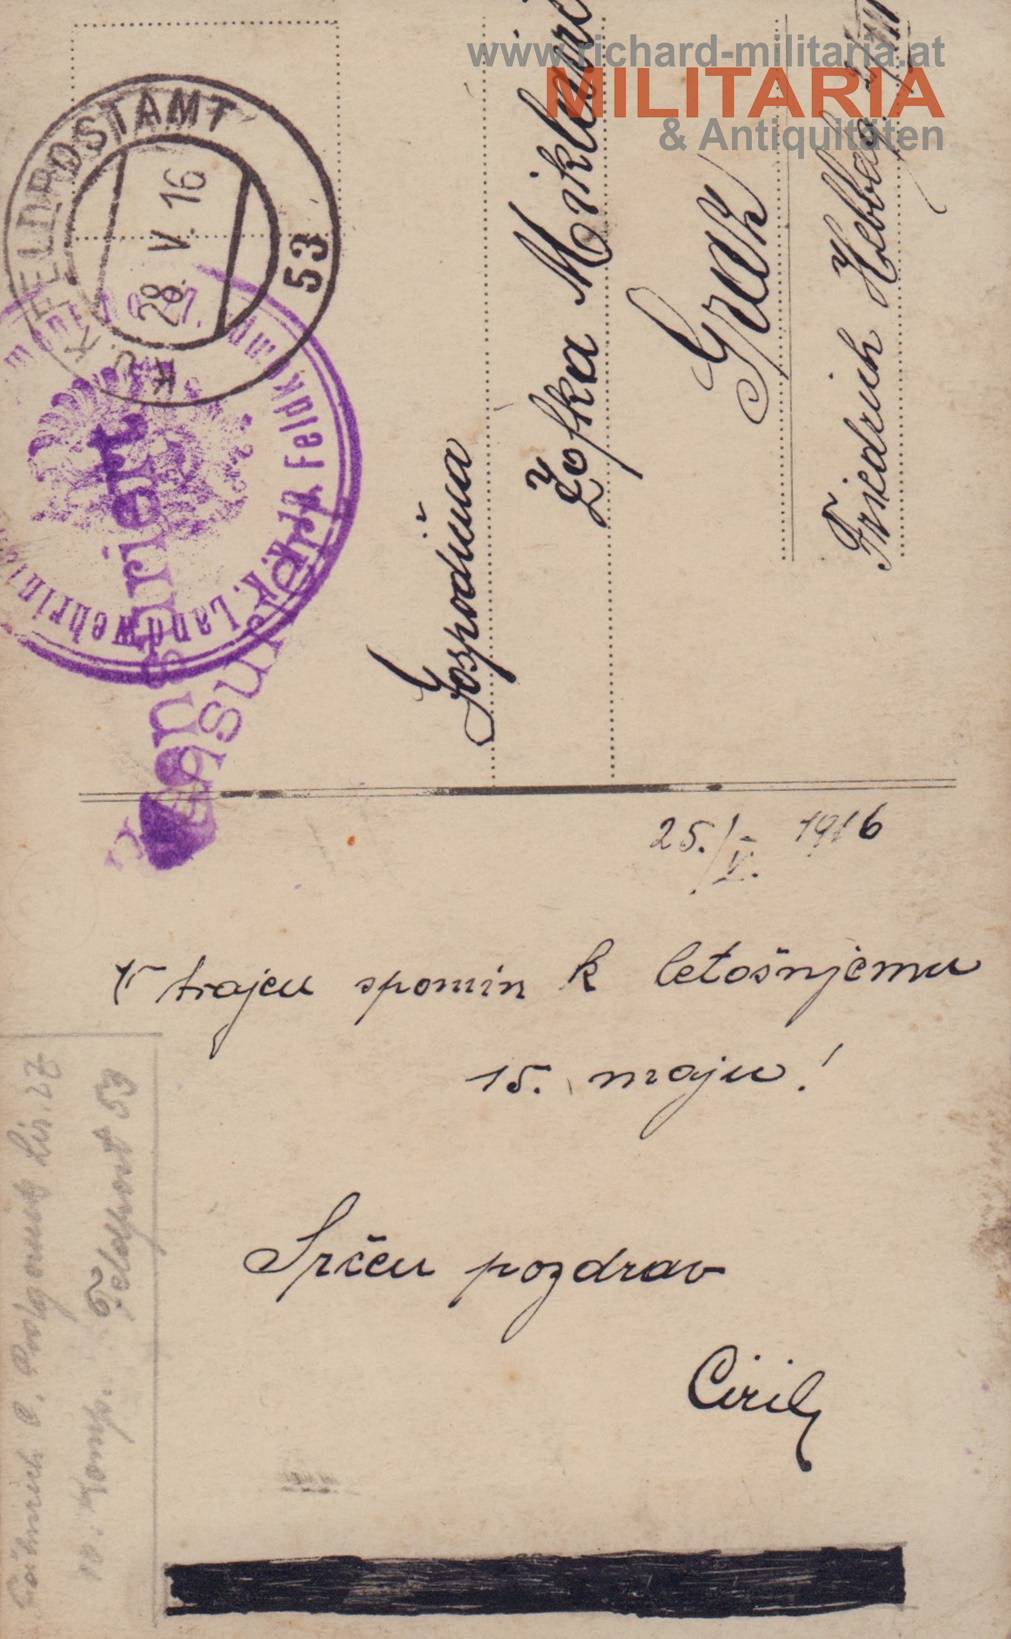 www.richard-militaria.at
MILITARIA
& Antiquitäten
K.u.K. FELDPOSTAMT
28. V. 16
53
Zensuriert
k.k. Landwehrinf
Feldk
Gospodična
Zofka
Graz
Friedrich
25./V. 1916
V trajen spomin k letošnjemu
15. maju!
Srčen pozdrav
Ciril
Fähnrich C.
10. Komp.
Feldpost 53